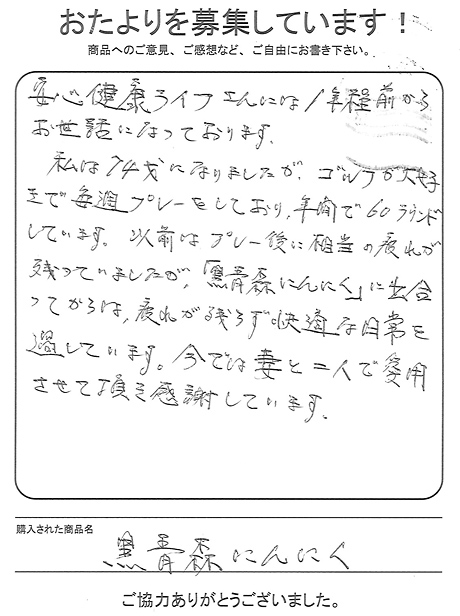 おたよりを募集しています！
商品へのご意見、ご感想など、ご自由にお書き下さい。
安心健康ライフさんには1年程前から
お世話になっております。
私は74才になりましたが、ゴルフが大好
きで毎週プレーをしており、年間で60ラウンド
しています。以前はプレー後に相当の疲れが
残っていましたが、「黒青森にんにく」に出合
ってからは、疲れが残らず快適な日常を
過しています。今では妻と二人で愛用
させて頂き感謝しています。
購入された商品名
黒青森にんにく
ご協力ありがとうございました。